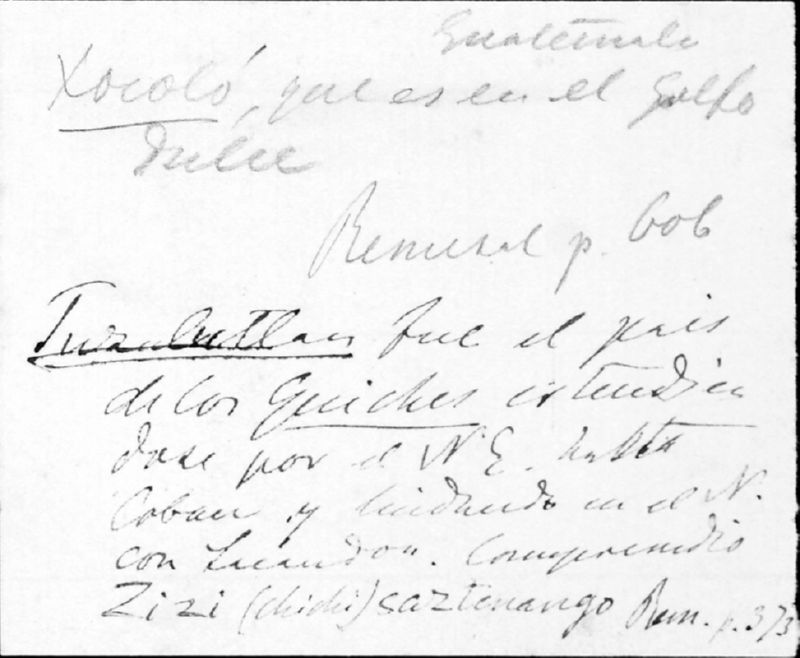 Guatemala
Xocoló, que es en el Golfo
Dulce
Remesal p. 606
Tuzulutlan fue el pais
de los Quiches estendien
dose por el N.E. hasta
Coban y lindando en el N.
con Lacandon. Comprendio
Zizi (chichi) saztenango Rem. p. 373